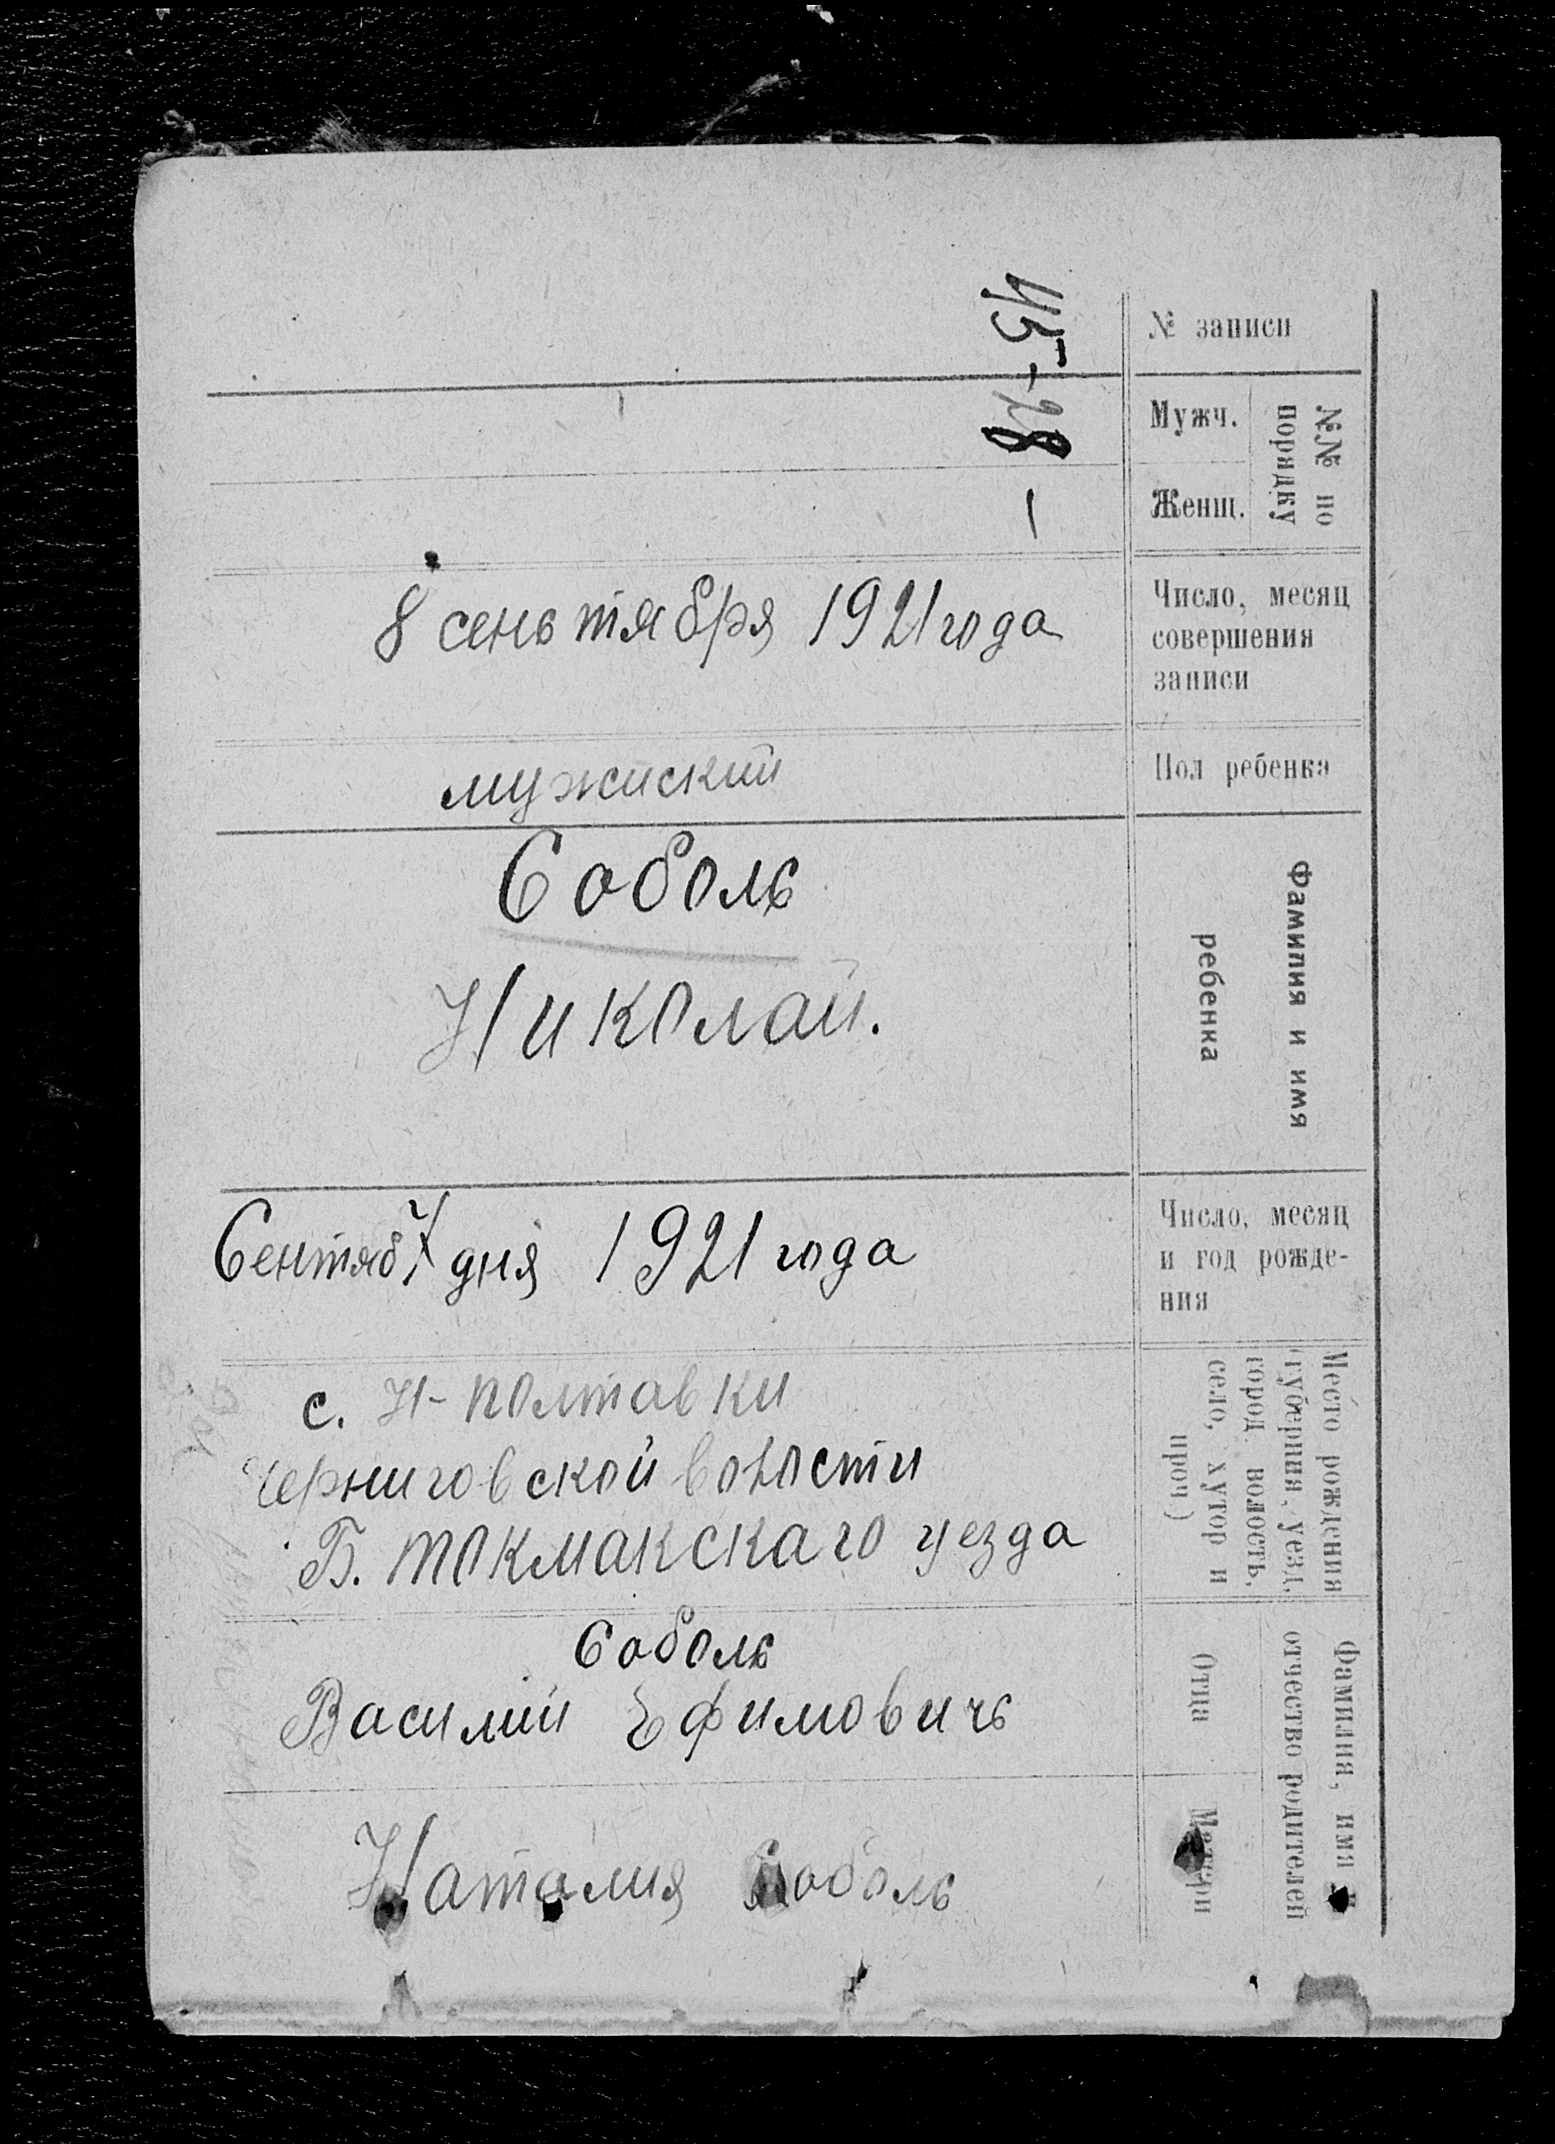 № записи
45-28
№№ по порядку
Мужч.
Женщ.
—
Число, месяц
совершения
записи
8 сеньтября 1921 года
Пол ребенка
мужиский
Фамилия и имя
ребенка
Соболь
Николай.
Число, месяц
и год рожде-
ния
Сентяб 7 дня 1921 года
Место рождения
(губерния, уезд,
город, волость,
село, хутор и
проч)
с. Н-Полтавки
Черниговской волости
Б. Токмакскаго уезда
Фамилия, имя и
отчество родителей
Отца
Соболь
Василий Ефимовичь
Матери
Наталия Соболь